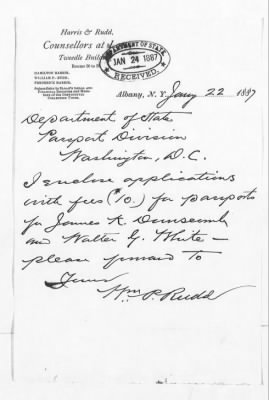 Harris & Rudd,
Counsellors at
Tweddle Building
Rooms
HAMILTON HARRIS,
WILLIAM P. RUDD,
FREDERICK HARRIS.
DEPARTMENT OF STATE
JAN 24 1887
RECEIVED.
Albany, N. Y. Jany 22 1887
Department of State
Passport Division
Washington, D.C.
I enclose applications
with fees ($10.) for passports
for James K. Dunscomb
and Walter G. White –
please forward to
Yours
Wm P. Rudd